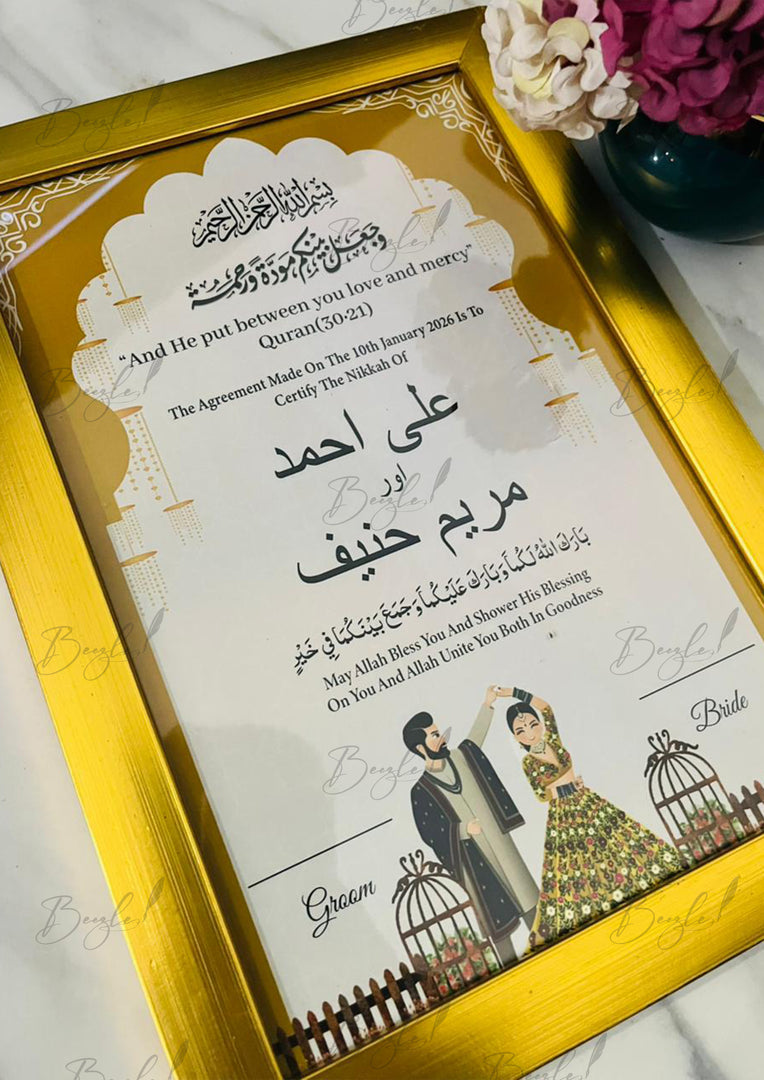 بسم الله الرحمن الرحيم
وجعل بينكم مودة ورحمة
“And He put between you love and mercy”
Quran(30:21)
The Agreement Made On The 10th January 2026 Is To
Certify The Nikkah Of
علی احمد
اور
مریم حنیف
بَارَكَ اللهُ لَكُمَا وَبَارَكَ عَلَيْكُمَا وَجَمَعَ بَيْنَكُمَا فِي خَيْرٍ
May Allah Bless You And Shower His Blessing
On You And Allah Unite You Both In Goodness
Bride
Groom
Beezle!